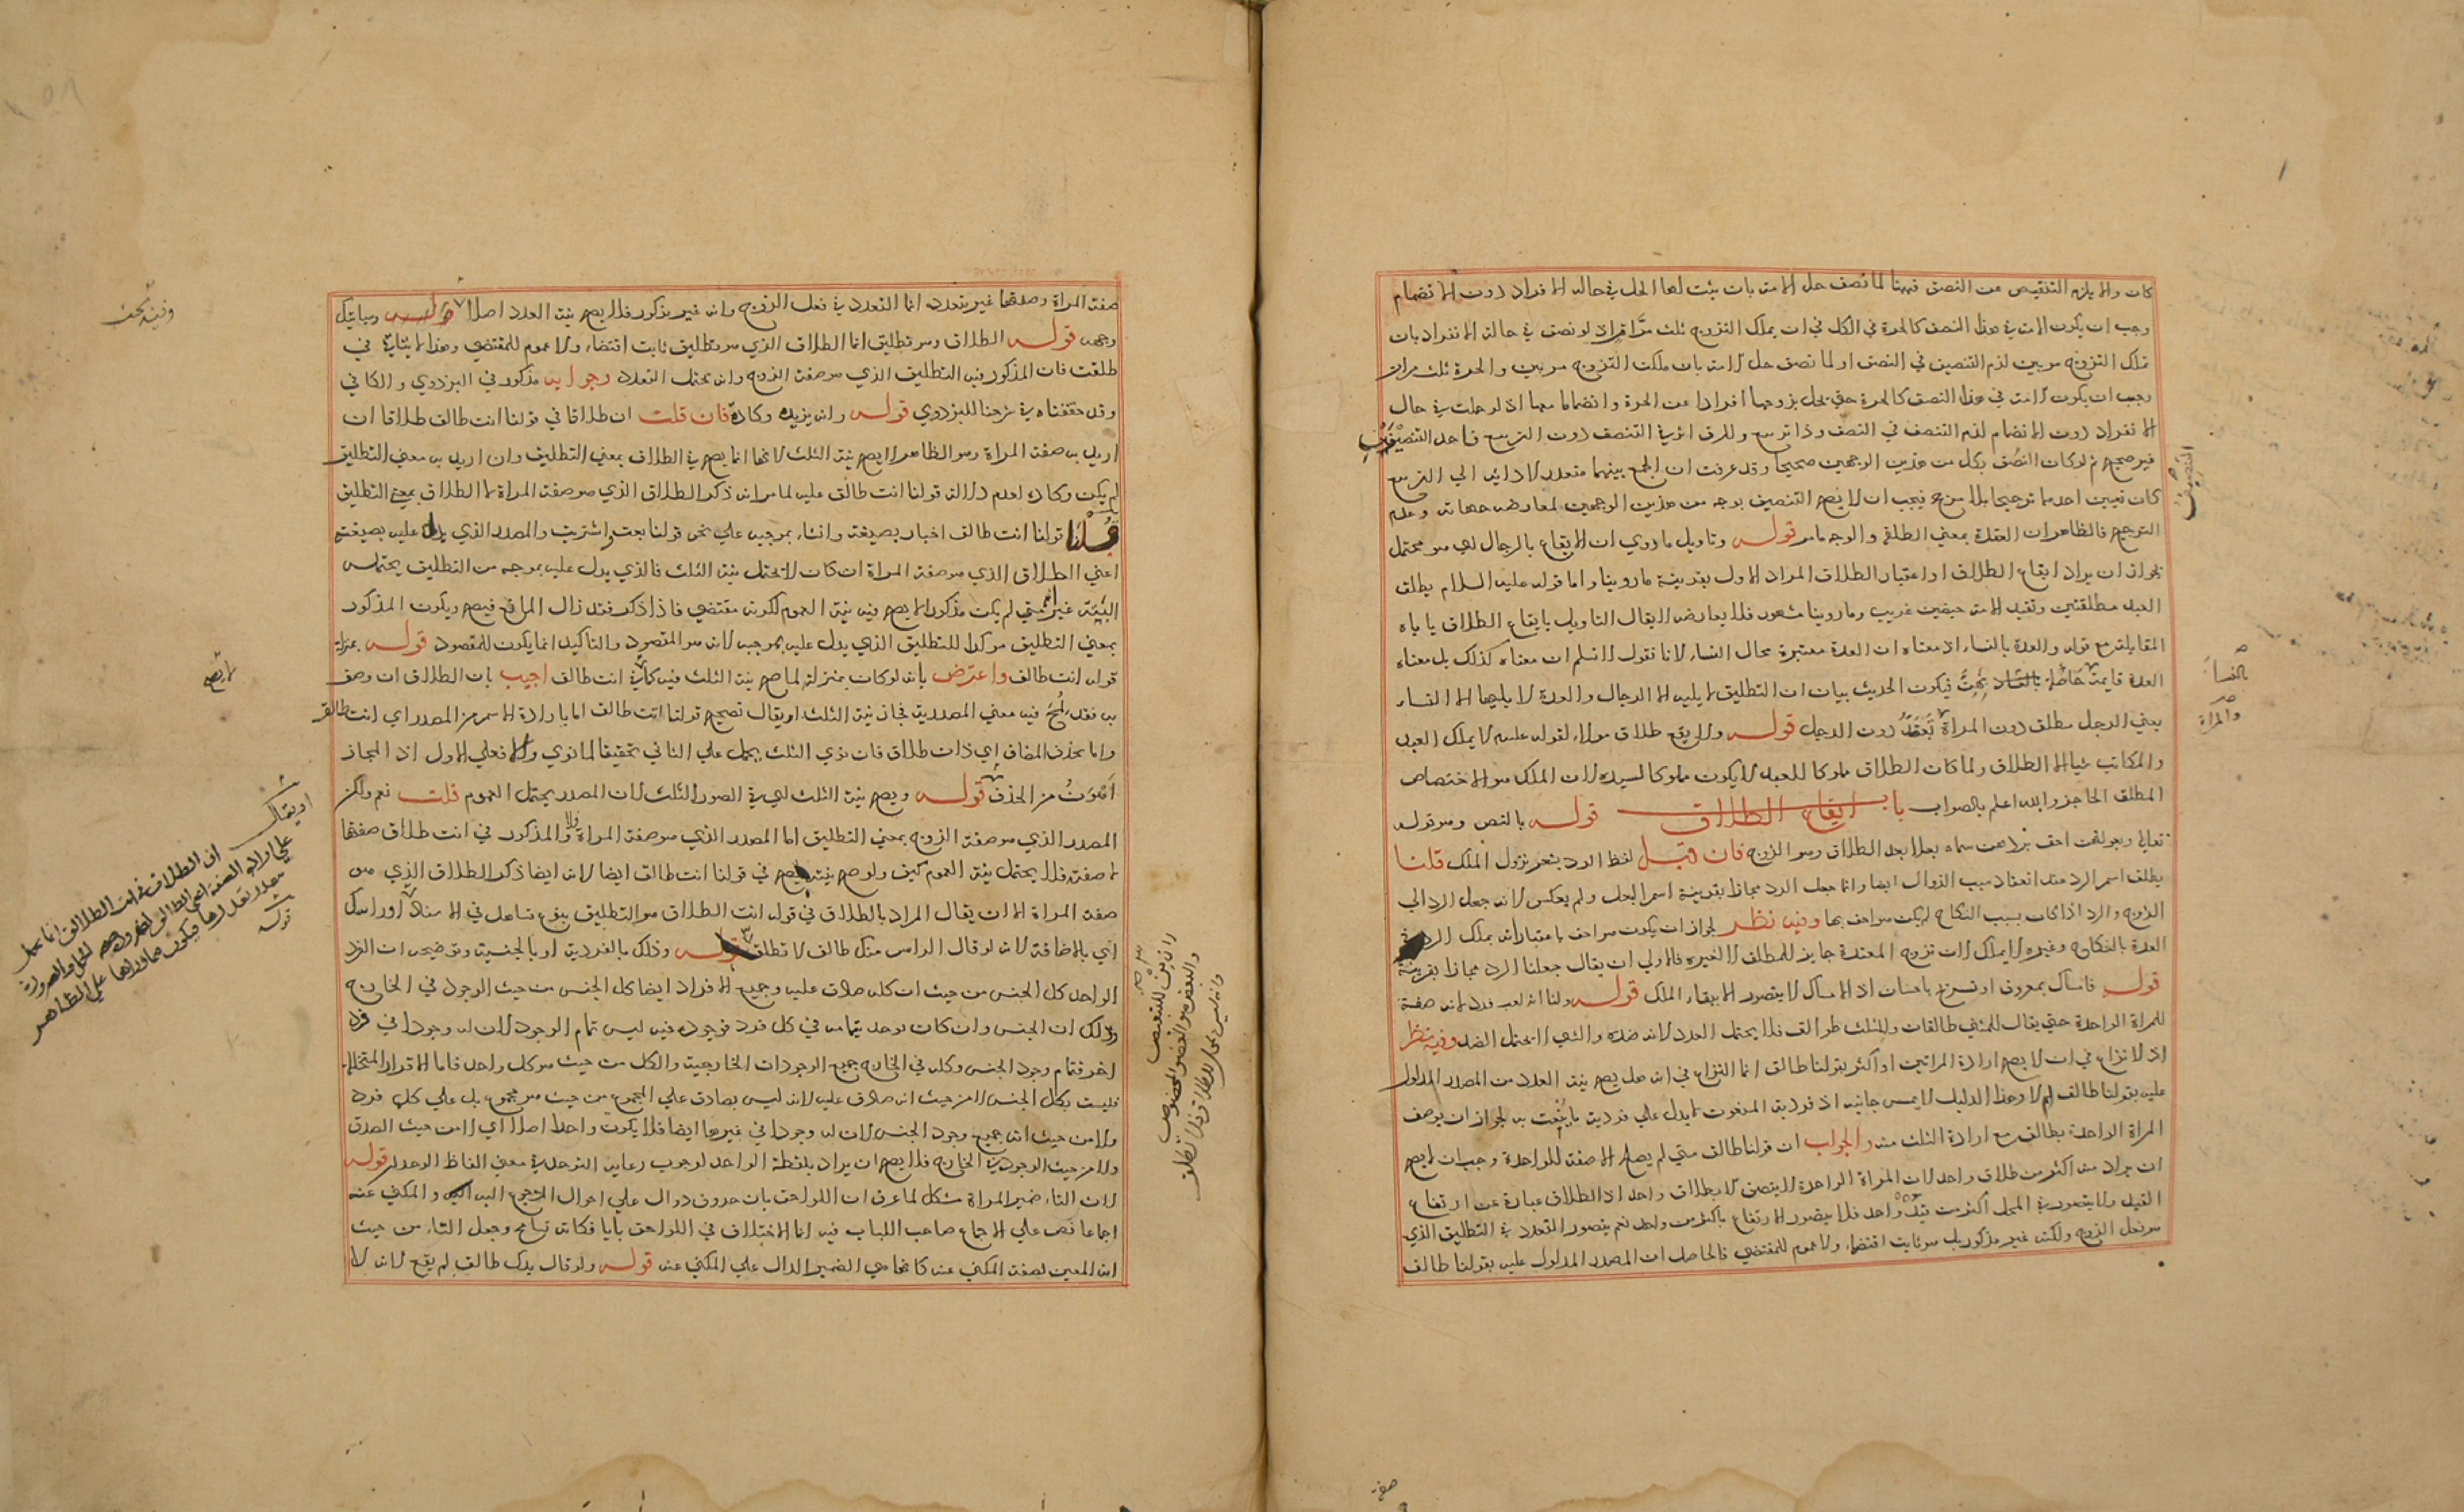 كان والا يلزم التنقيص عن النصف فههنا لما نصف حل الامة بان يثبت لها الحل في حالة الانفراد دون الانضمام
وجب ان يكون الامة في هذا النصف كالحرة في الكل في ان يملك التزوج ثلث مرات اذ لو نصف في حالة الانفراد بان
تملك التزوج مرتين لزم التنصيف في النصف او لما نصف حل الامة بان ملكت التزوج مرتين والحرة ثلث مرات
وجب ان يكون الامة في هذا النصف كالحرة حتى يحل تزوجها افرادا عن الحرة وانضماما معها اذ لو حلت في حال
الانفراد دون الانضمام لزم التنصف في النصف وذا تربيع وللرق اثر في التنصف دون التربيع فاحد التنصيفين
غير صحيح ثم لو كان التنصف بكل من هذين الوجهين صحيحا وقد عرفت ان الجمع بينهما متعذر لادائه الي التربيع
كان تعيين احدهما ترجيحا بلا مرجح فيجب ان لا يصح التنصيف بوجه من هذين الوجهين لمعارضة جهاته وعدم
الترجيح فالظاهر ان العقدة بمعني الطلقة والوجه مامر قوله وتاويل ماروي ان الايقاع بالرجال اي هو محتمل
لجواز ان يراد ايقاع الطلاق او اعتبار الطلاق المراد الاول بقرينة ماروينا واما قوله عليه السلام يطلق
العبد مطلقتين وتعتد الامة حيضتين غريب وماروينا مشهور فلا يعارضه لايقال التاويل بايقاع الطلاق ياباه
المقابلة مع قوله والعدة بالنساء اذ معناه ان العدة معتبرة بحال النساء لانا نقول لانسلم ان معناه كذلك بل معناه
العدة قايمة فيكون الحديث بيان ان التطليق لا يليه الا الرجال والعدة لا يليها الا النساء
يعني الرجل مطلق دون المراة تعتد دون الرجل قوله ولا يقع طلاق مولاه لقوله عليه لا يملك العبد
والمكاتب شيا الا الطلاق ولما كان الطلاق ملوكا للعبد لا يكون مملوكا لسيده لان الملك هو الاختصاص
المطلق الحاجز والله اعلم بالصواب باب ايقاع الطلاق قوله بالنص وهو قوله
تعالي وبعولتهن احق بردهن سماه بعلا بعد الطلاق وهو الزوج فان قيل لفظ الرد يشعر بزوال الملك قلنا
يطلق اسم الرد عند انعقاد سبب الزوال ايضا وانما جعل الرد مجازا بقرينة اسم البعل ولم يعكس لانه جعل الرد الي
الزوج والرد اذا كان بسبب النكاح لم يكن هو احق بها وفيه نظر لجواز ان يكون هو احق باعتبار انه يملك الرد في
العدة بالنكاح وغيره لا يملك لان تزوج المعتدة جايز للمطلق لا لغيره فالاولي ان يقال جعلنا الرد مجازا بقرينة
قوله فامساك بمعروف او تسريح باحسان اذ الامساك لا يتصور الا ببقاء الملك قوله ولنا انه نعت فرد لانه صفة
للمراة الواحدة حتي يقال للمثني طالقان وللثلث طوالق فلا يحتمل العدد لانه ضده والشي لا يحتمل الضد وفيه نظر
اذ لا نزاع في ان لا يصح ارادة المراتين او اكثر بقولنا طالق انما النزاع في انه هل يصح نية العدد من المصدر المدلول
عليه بقولنا طالق ام لا وهذا الدليل لا يمس جانبه اذ فردية المنعوت لا يدل علي فردية ما ينعت به لجواز ان يوصف
المراة الواحدة بطالق مع ارادة الثلث منه والجواب ان قولنا طالق متي لم يصلح الا صفة للواحدة وجب ان لا يصح
ان يراد منه اكثر من طلاق واحد لان المراة الواحدة لا يتصف الا بطلاق واحد اذ الطلاق عبارة عن ارتفاع
القيد ولا يتصور في المحل اكثر من قيد واحد فلا يتصور الارتفاع باكثر من واحد نعم يتصور التعدد في التطليق الذي
هو فعل الزوج ولكنه غير مذكور بل هو ثابت اقتضاء ولا عموم للمقتضي فالحاصل ان المصدر المدلول عليه بقولنا طالق
التنصيف
بالنساء
والمراة
صفة
صفة المراة وصفتها غير متعدد انما التعدد في فعل الزوج وانه غير مذكور فلا يصح نية العدد اصلا قوله وسياتيك
وجهه قوله الطلاق وهو تطليق انما الطلاق الذي هو تطليق ثابت اقتضاء ولا عموم للمقتضي وهذا لا يتاتي في
طلقت فان المذكور فيه التطليق الذي هو صفة الزوج وانه يحتمل التعدد وجوابه مذكور في البزدوي والكافي
وقد حققناه في شرحنا للبزدوي قوله وانه يزيده وكادة فان قلت ان طلاقا في قولنا انت طالق طلاقا ان
اريد به صفة المراة وهو الظاهر لا يصح نية الثلث لانها انما يصح في الطلاق بمعني التطليق وان اريد به معني التطليق
لم يكن وكادة لعدم دلالة قولنا انت طالق عليه لما مر انه ذكر الطلاق الذي هو صفة المراة لا الطلاق بمعني التطليق
قلنا قولنا انت طالق اخبار بصيغته وانشاء بموجبه علي نحو قولنا بعت واشتريت والمصدر الذي يدل عليه بصيغته
اعني الطلاق الذي هو صفة المراة ان كان لا يحتمل نية الثلث فالذي يدل عليه بموجبه من التطليق يحتمله
البتة غير انه متي لم يكن مذكورا لا يصح فيه نية العموم لكونه مقتضي فاذا ذكر فقد زال المانع فيصح ويكون المذكور
بمعني التطليق موكدا للتطليق الذي يدل عليه بموجبه لانه هو المقصود والتاكيد انما يكون للمقصود قوله بمنزلة
قوله انت طالق واعترض بانه لو كان بمنزلته لما صح نية الثلث فيه كما في انت طالق اجيب بان الطلاق ان وصف
به فقد لمح فيه معني المصدرية فجاز نية الثلث او يقال تصحيح قولنا انت طالق اما بارادة الاسم من المصدر اي انت طالق
واما بحذف المضاف اي ذات طلاق فان نوي الثلث يحمل علي الثاني تحقيقا لما نوي والا فعلي الاول اذ المجاز
اهون من الحذف قوله ويصح نية الثلث اي في الصور الثلث لان المصدر يحتمل العموم قلت نعم ولكن
المصدر الذي هو صفة الزوج بمعني التطليق اما المصدر الذي هو صفة المراة فلا والمذكور في انت طلاق صفتها
لا صفته فلا يحتمل نية العموم كيف ولو صح نيته يصح في قولنا انت طالق ايضا لانه ايضا ذكر الطلاق الذي هو
صفة المراة الا ان يقال المراد بالطلاق في قوله انت الطلاق هو التطليق بنوع تساهل في الاسناد قوله او راسك
اي بالاضافة لانه لو قال الراس منك طالق لا تطلق قوله وذلك بالفردية او بالجنسية وتوضيحه ان الفرد
الواحد كل الجنس من حيث ان كله صادق عليه وجميع الافراد ايضا كل الجنس من حيث الوجود في الخارج
وذلك ان الجنس وان كان يوجد بتمامه في كل فرد فوجوده فيه ليس تمام الوجود لان له وجودا في فرد
اخر فتمام وجود الجنس وكله في الخارج جميع الوجودات الخارجية والكل من حيث هو كل واحد فاما الافراد المتخللة
فليست بكل الجنس لا من حيث انه صادق عليه لانه ليس بصادق علي المجموع من حيث هو مجموع بل علي كل فرد
ولا من حيث انه جميع وجود الجنس لان له وجودا في غيرها ايضا فلا يكون واحدا اصلا اي لا من حيث الصدق
ولا من حيث الوجود في الخارج فلا يصح ان يراد بلفظة الواحد لوجوب رعاية التوحد في معني الفاظ الوحد قوله
لان التاء ضمير المراة مشكل لما عرف ان اللواحق بان حروف دوال علي احوال المرجوع اليه والمكني عنه
اجماعا نص علي الاجماع صاحب اللباب فيه انما الاختلاف في اللواحق بايا فكانه تسامح وجعل التاء من حيث
انه المعين لصفة المكني عنه كانها هي الضمير الدال علي المكني عنه قوله ولو قال يدك طالق لم يقع لانه لا
وفيه بحث
لا يصح
او يقال
ان الطلاق في انت الطلاق انما يحمل